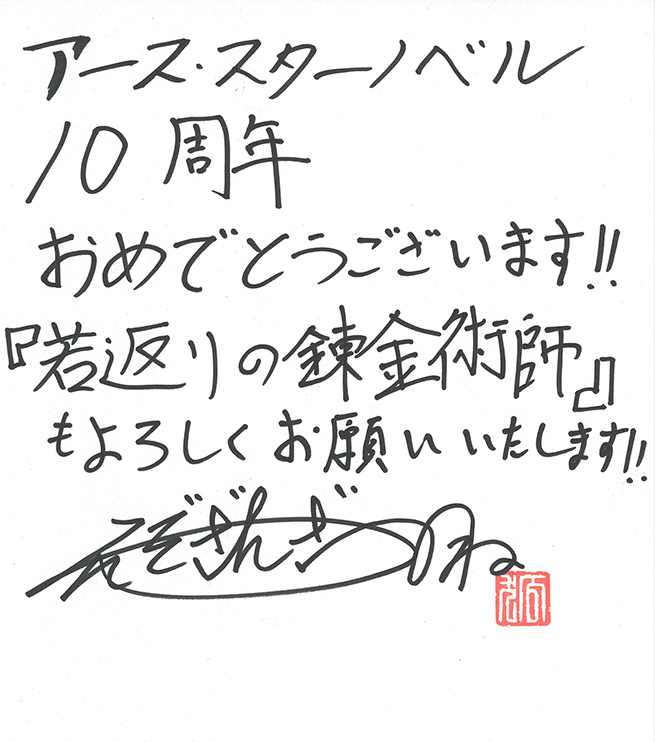 アース・スターノベル
10周年
おめでとうございます!!
『若返りの錬金術師』
もよろしくお願いいたします!!
えぞぎんぎつね